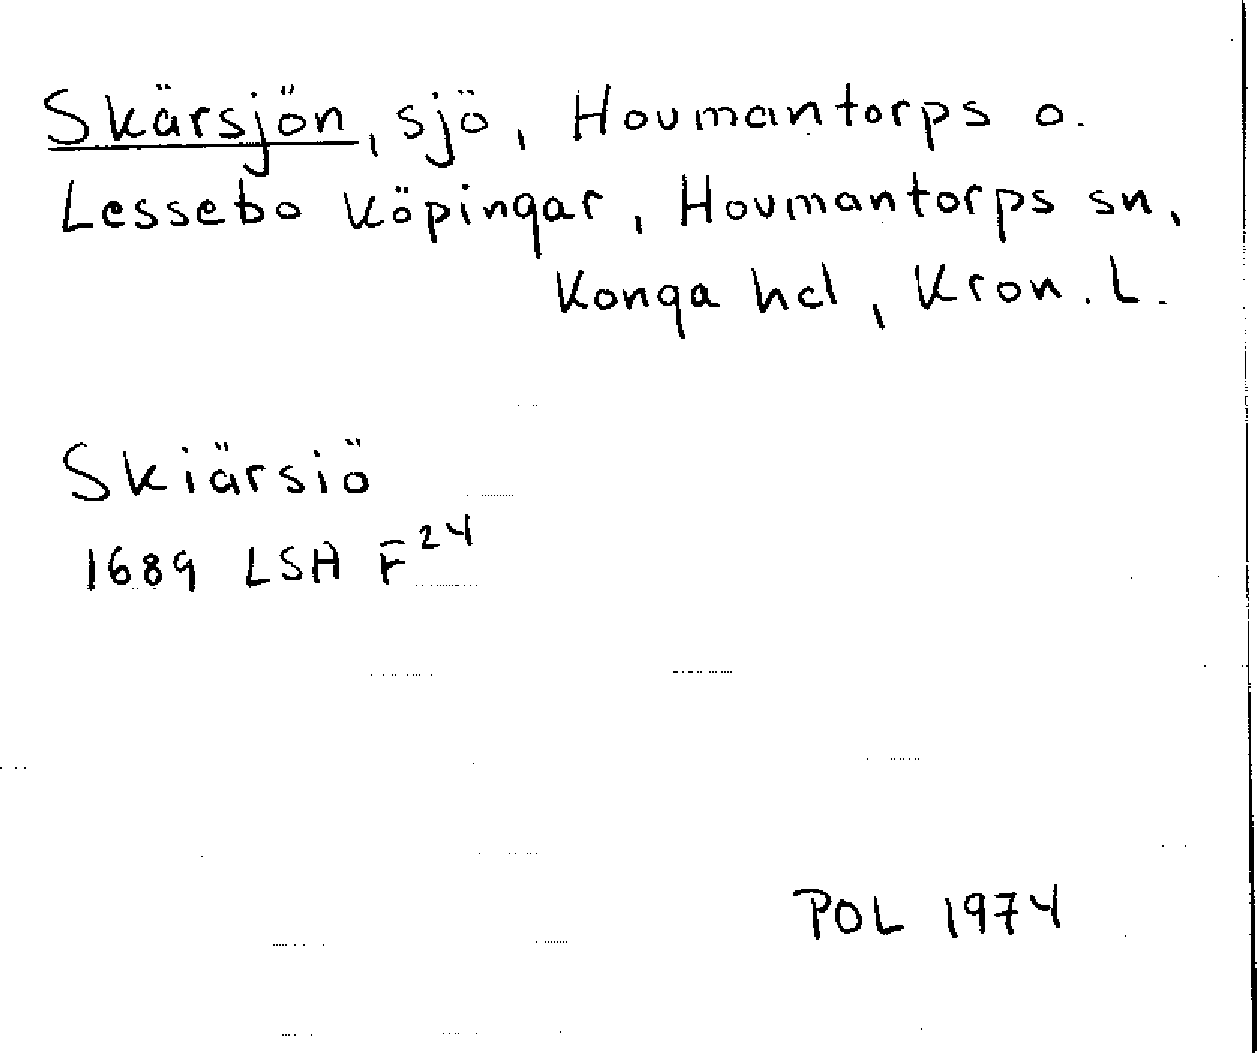 Skärsjön, sjö, Hovmantorps o.
Lessebo köpingar, Hovmantorps sn,
Konga hd, Kron. L.
Skiärsiö
1689 LSA F24
POL 1974